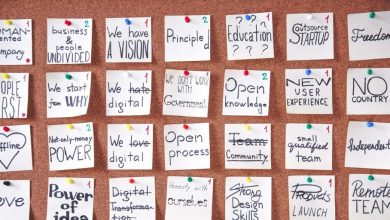 UMAN-
ENTED
Company
business
& people
UNDIVIDED
We have
A VISION
Principled
Education
? ? ?
Outsource
STARTUP
Freedom
PEOPLE
FIRST
We start
from WHY
We hate
digital
WE DON'T WORK
with
Government
Open
knowledge
NEW
USER
EXPERIENCE
NO
COUNTRY
offline
Not-only-money
POWER
We love
digital
Open
process
Team
Community
small
qualified
team
Independent
Love
Power of
idea
Digital
Transforma-
tion
Honesty with
ourselves
Strong
Design
Skills
PRODUCTS
LAUNCH
Remote
TEAM